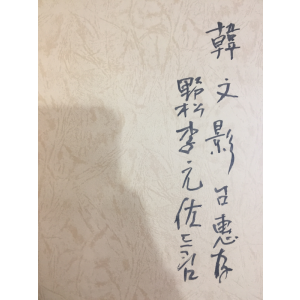 韓文影 吕惠存
野松 李元佐드림